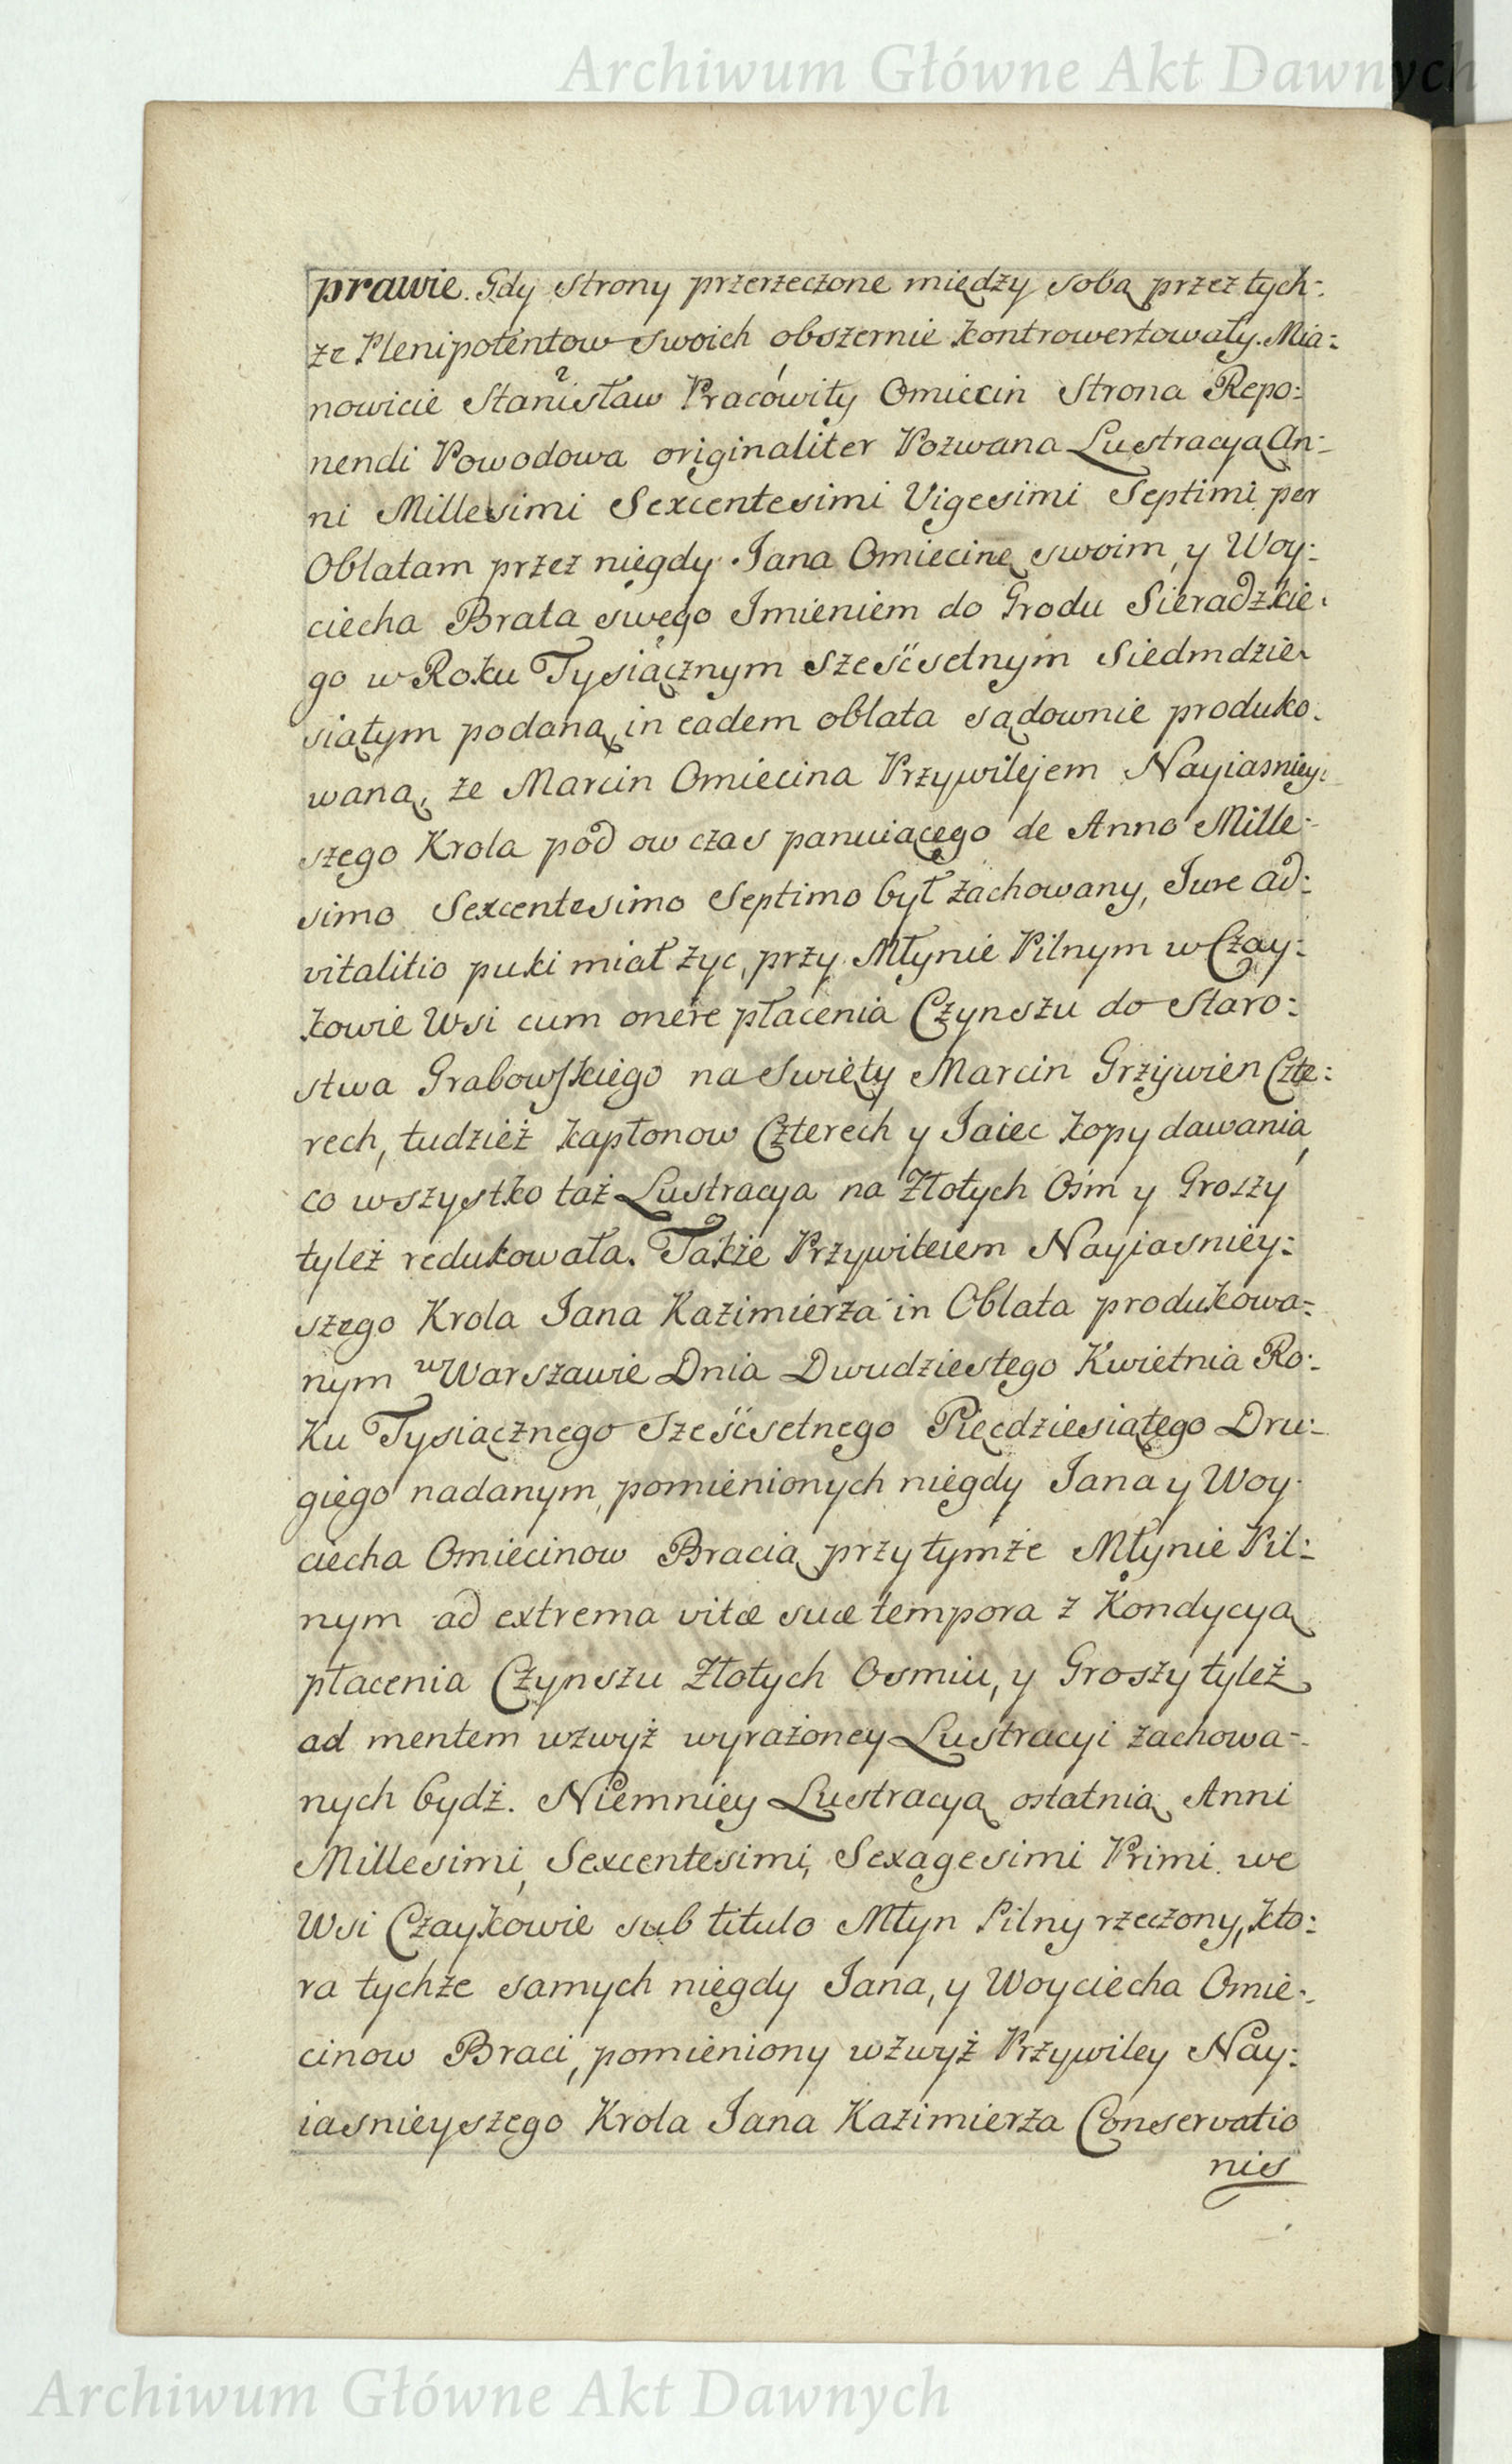 Archiwum Główne Akt Dawnych
prawie. Gdy strony przerzeczone między sobą przez tych-
że Plenipotentow swoich obszernie kontrowertowały. Mia:
nowicie Stanisław Pracowity Omiecin Strona Repo:
nendi Powodowa originaliter Pozwana Lustracyą An-
ni Millesimi Sexcentesimi Vigesimi Septimi per
Oblatam przez niegdy Jana Omiecinę swoim, y Woy:
ciecha Brata swego Imieniem do Grodu Sieradzkie:
go w Roku Tysiącznym sześćsetnym Siedmdzie:
siątym podaną, in eadem oblata sądownie produko:
waną, że Marcin Omiecina Przywilejem Nayiasniey:
szego Krola pod ow czas panuiącego de Anno Mille:
simo Sexcentesimo Septimo był zachowany, Jure ad:
vitalitio puki miał życ, przy Młynie Pilnym w Czay:
kowie Wsi cum onere płacenia Czynszu do Staro:
stwa Grabowskiego na Swięty Marcin Grzywien Czte:
rech, tudzież kapłonow Czterech y Jaiec kopy dawania,
co wszystko taż Lustracya na Złotych Ośm y Groszy
tyleż redukowała. Także Przywileiem Nayjasniey:
szego Krola Jana Kazimierza in Oblata produkowa:
nym w Warszawie Dnia Dwudziestego Kwietnia Ro:
ku Tysiącznego Sześćsetnego Pięcdziesiątego Dru:
giego nadanym, pomienionych niegdy Jana y Woy:
ciecha Omiecinow Bracią przy tymże Młynie Pil:
nym ad extrema vitæ suæ tempora z Kondycyą
płacenia Czynszu Złotych Osmiu, y Groszy tyleż
ad mentem wzwyż wyrażoney Lustracyi zachowa-
nych bydż. Niemniey Lustracyą ostatnią Anni
Millesimi, Sexcentesimi, Sexagesimi Primi we
Wsi Czaykowie sub titulo Młyn Pilny rzeczony, kto:
ra tychże samych niegdy Jana, y Woyciecha Omie:
cinow Braci, pomieniony wzwyż Przywiley Nay:
iasnieyszego Krola Jana Kazimierza Conservatio
nis
Archiwum Główne Akt Dawnych